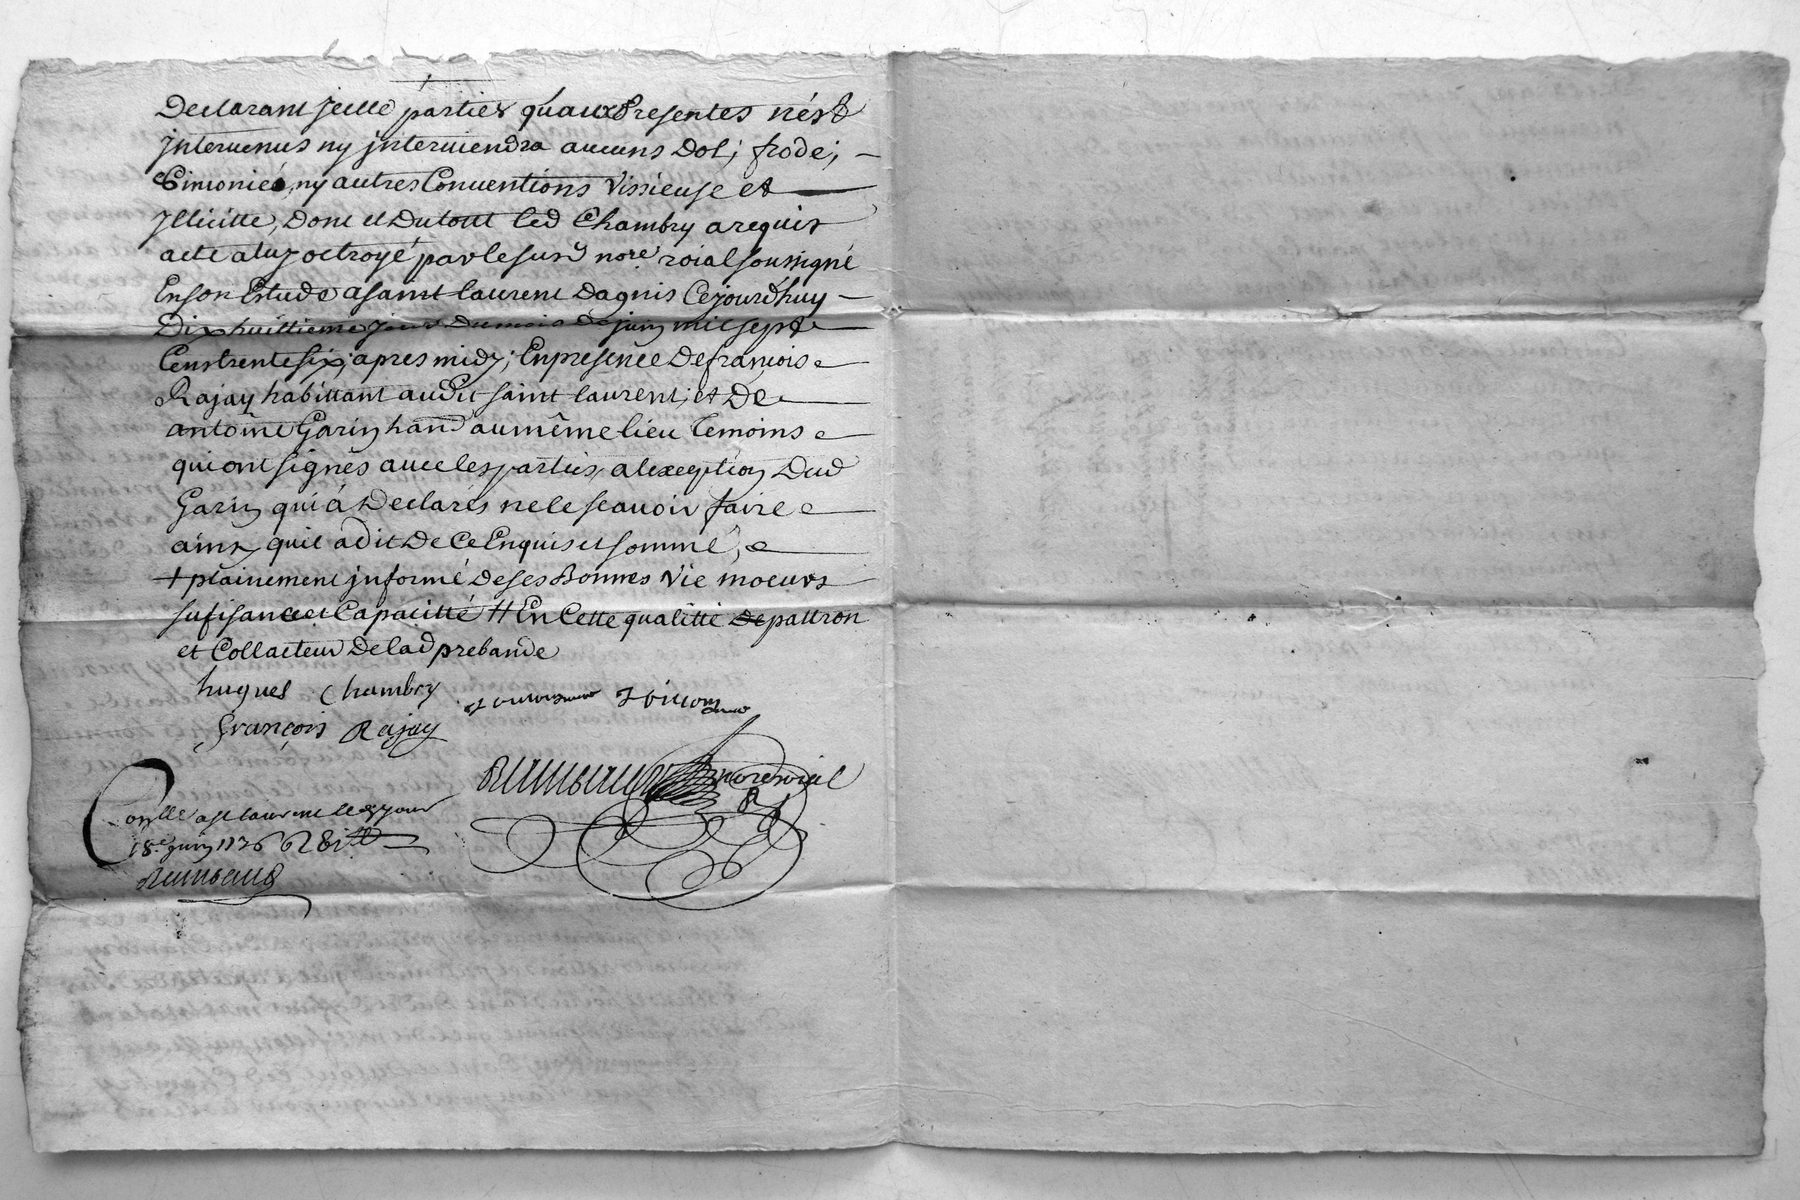 Declarant jcelle parties quaux Presentes nést
jntervenus ny jnterviendra aucuns Dol; frode;
Simonieé, ny autres Conventions Vissieuse et
jllicitte, Dont et Dutout led Chambry a requis
acte aluy octroyé par le susd nore roial soussigné
En son Estude a saint laurent Dagnis Cejourdhuy
Dix huittieme jour Dumois de juin mil sept
Cens trente six; apres midy; En presence De françois
Rajay habittant au Dit saint laurent; et De
antoine Garin hand au même lieu temoins
qui ont signés avec les parties, a lexception Dud
Garin qui à Declarés ne le scavoir faire
ainsy quil a dit De Ce Enquis et sommé;
+ plainement jnformé De ses Bonnes Vie moeurs
sufisance et Capacitté # En Cette qualitté de pattron
et Collacteur De lad prebande
hugues Chambry
françois Rajay
nore roial
Conllé a st laurent le jour
18e juin 1736